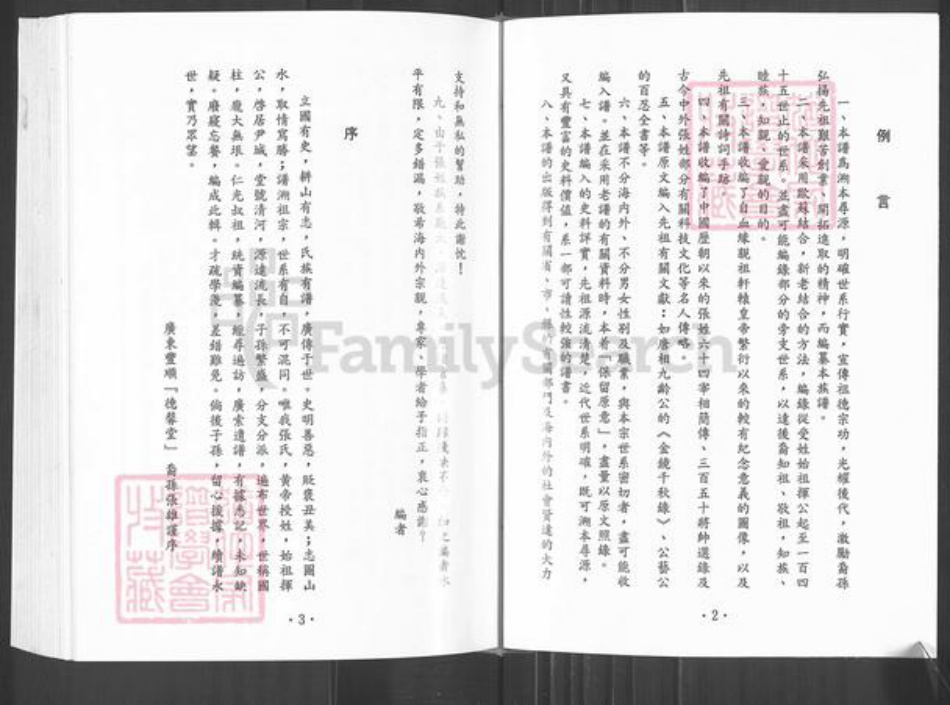 例言
一、本譜為溯本尋源，明確世系行實，宣傳祖德宗功，光耀後代，激勵裔孫
弘揚先祖艱苦創業、開拓進取的精神，而編纂本族譜。
二、本譜采用歐蘇結合，新老結合的方法，編錄從受姓始祖揮公起至一百四
十五世止的世系。並盡可能編錄部分的旁支世系，以達後裔知祖、敬祖，知族、
睦族，知親、愛親的目的。
三、本譜收編了自血緣親祖軒轅皇帝繁衍以來的較有紀念意義的圖像，以及
先祖有關詩詞手跡。
四、本譜收編了中國歷朝以來的張姓六十四宰相簡傳、三百五十將帥選錄及
古今中外張姓部分有關科技文化等名人傳略。
五、本譜原文編入先祖有關文獻：如唐相九齡公的《金鏡千秋錄》、公藝公
的百忍全書等。
六、本譜不分海內外、不分男女性別及職業，與本宗世系密切者，盡可能收
編入譜。並在采用老譜的有關資料時，本着「保留原意」，盡量以原文照錄。
七、本譜編入的史料詳實，先祖源流清楚，近代世系明確，既可溯本尋源，
又具有豐富的史料價值，系一部可讀性較強的譜書。
八、本譜的出版得到有關省、市、縣的有關部門及海內外的社會賢達的大力
·2·
支持和無私的幫助，特此謝忱！
九、由于張姓
平有限，定多錯漏，敬希海內外宗親，專家、學者給予指正，衷心感謝？
編者
序
立國有史，耕山有志，氏族有譜，廣傳于世。史明善惡，貶褒丑美；志圖山
水，取情寫勝；譜溯祖宗，世系有自，不可混同。唯我張氏，黃帝授姓，始祖揮
公，啓居尹城，堂號清河，源遠流長，子孫繁盛，分支分派，遍布世界，世稱國
柱，龐大無垠。仁光叔祖，統賁編纂，繼尋遍訪，廣索遺譜，有據悉記，未知缺
疑。廢寢忘餐，編成此輯。才疏學淺，差錯難免。倘後子孫，留心援據，續譜永
世，實乃眾望。
廣東豐順「德馨堂」裔孫張雄謹序
·3·
FamilySearch